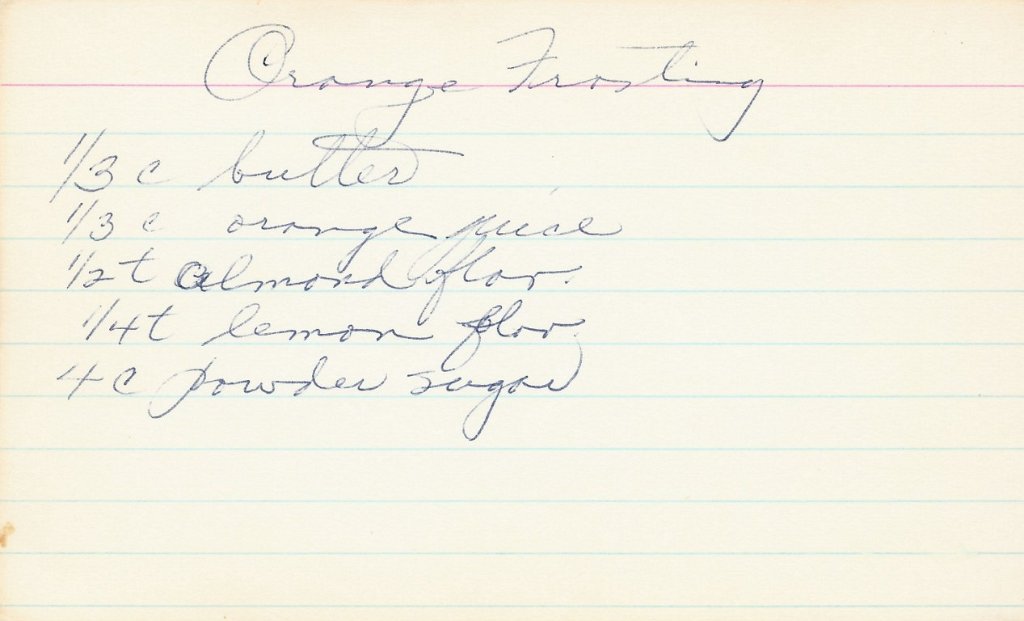 Orange Frosting
1/3 c butter
1/3 c orange juice
1/2 t almond flor.
1/4 t lemon flor.
4 c powder sugar